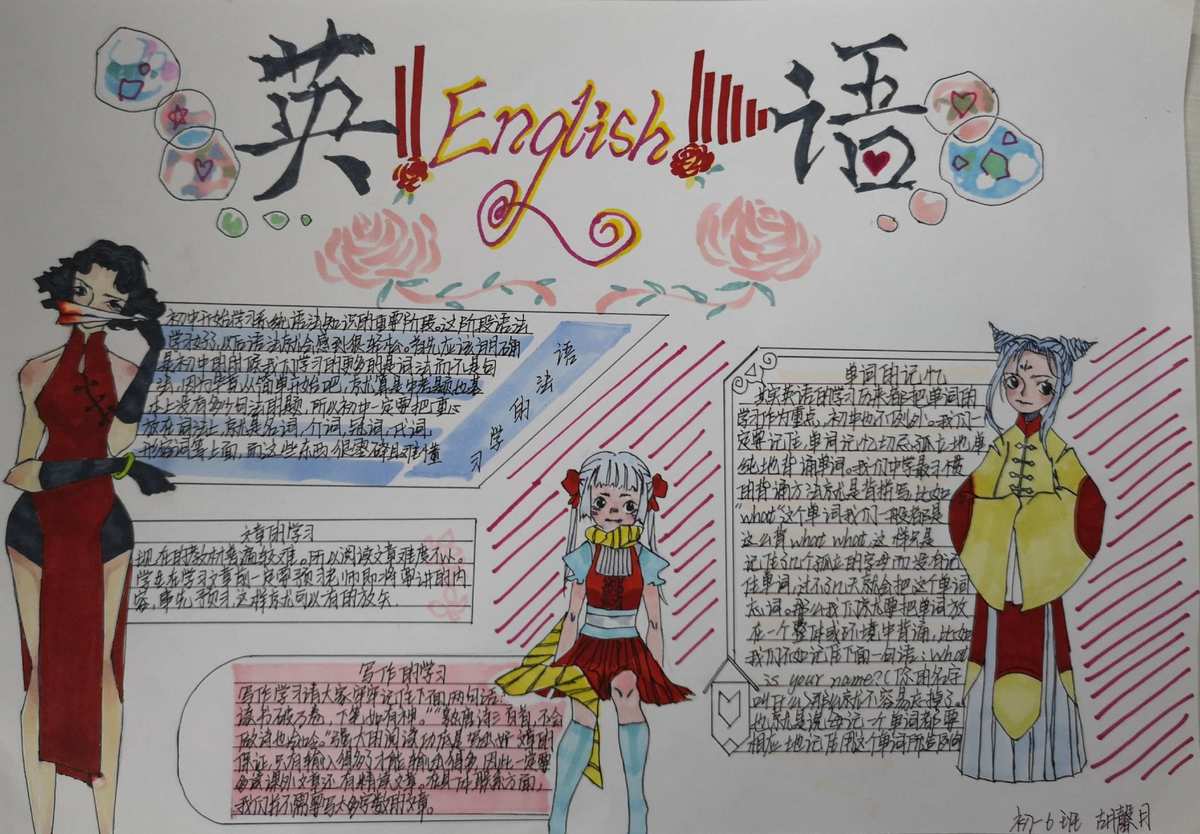 英 English 语
语法的学习
初中开始学习系统语法知识的重要阶段。这阶段语法
学好了,以后语法就会感到很轻松。首先应该明确
是初中的时候我们学习的更多的是词法而不是句
法,因为需要从简单开始吧,就算是中考题也基
本上没有多少句法的题,所以初中一定要把重心
放在词法上,就是名词,介词,冠词,代词,
形容词等上面,而这些东西很零碎且难懂
文章的学习
现在的教材普遍较难。所以阅读文章难度不小。
学生在学习文章前一定要预习老师即将要讲的内
容,事先预习,这样就可以有的放矢.
写作的学习
写作学习请大家牢牢记住下面两句话:
读书破万卷,下笔如有神。""熟读诗三百首,不会
做诗也会吟。"强大的阅读功底是写出好文章的
保证,只有输入得多了才能输出得多,因此一定要
多读课外文章还有精读文章。在具体联系方面,
我们并不需要写大多字数的文章。
单词的记忆
其实英语的学习历来都把单词的
学习作为重点,初中也不例外。我们一
定要记住,单词记忆切忌孤立地,单
纯地背诵单词。我们中学最习惯
的背诵方法就是背拼写,比如
"what"这个单词我们一般都是
这么背what what,这样只是
记住几个孤立的字母而没有记
住单词,过不了几天就会把这个单词
忘词。那么我们就要把单词放
在一个整体或环境中背诵,比如
我们不如记住下面一句话:What
is your name?(你的名字
叫什么)那么就不容易忘掉了。
也就是说,每记一个单词都要
相应地记住用这个单词所造的句
初一6班 胡馨月